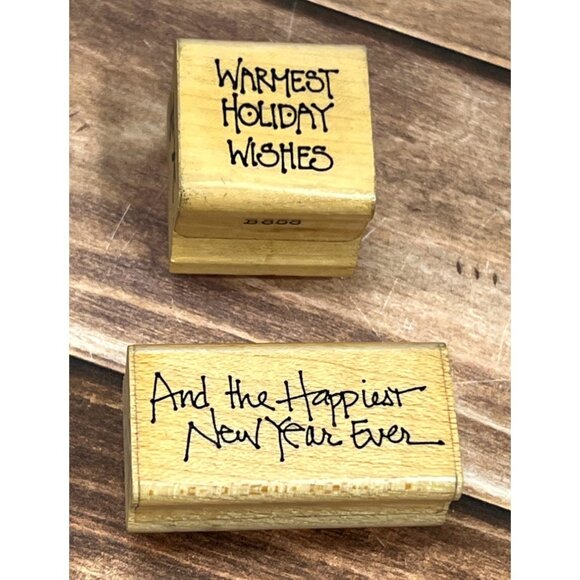 WARMEST
HOLIDAY
WISHES
And the Happiest
New Year Ever